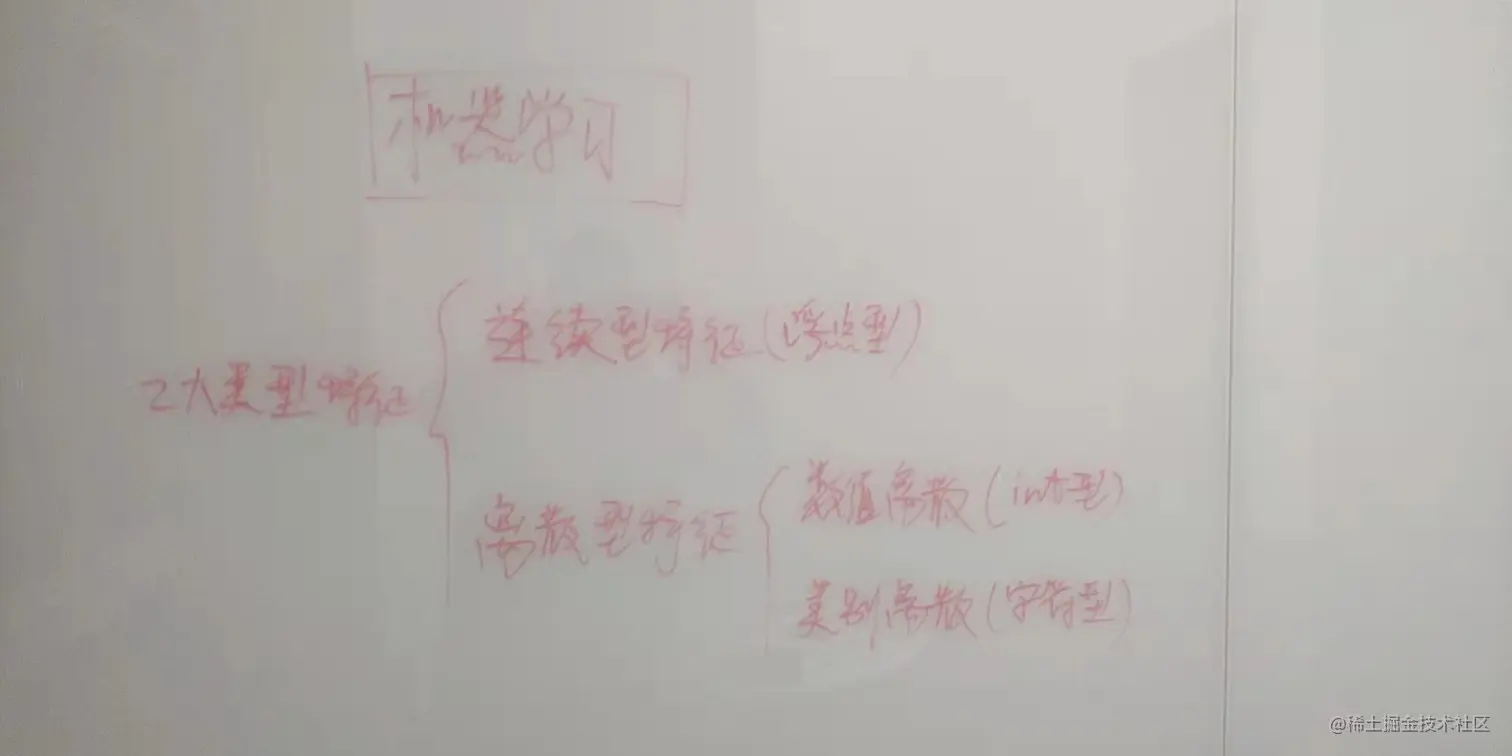 机器学习
2大类型特征
连续型特征(浮点型)
离散型特征
数值离散(int型)
类别离散(字符型)
@稀土掘金技术社区